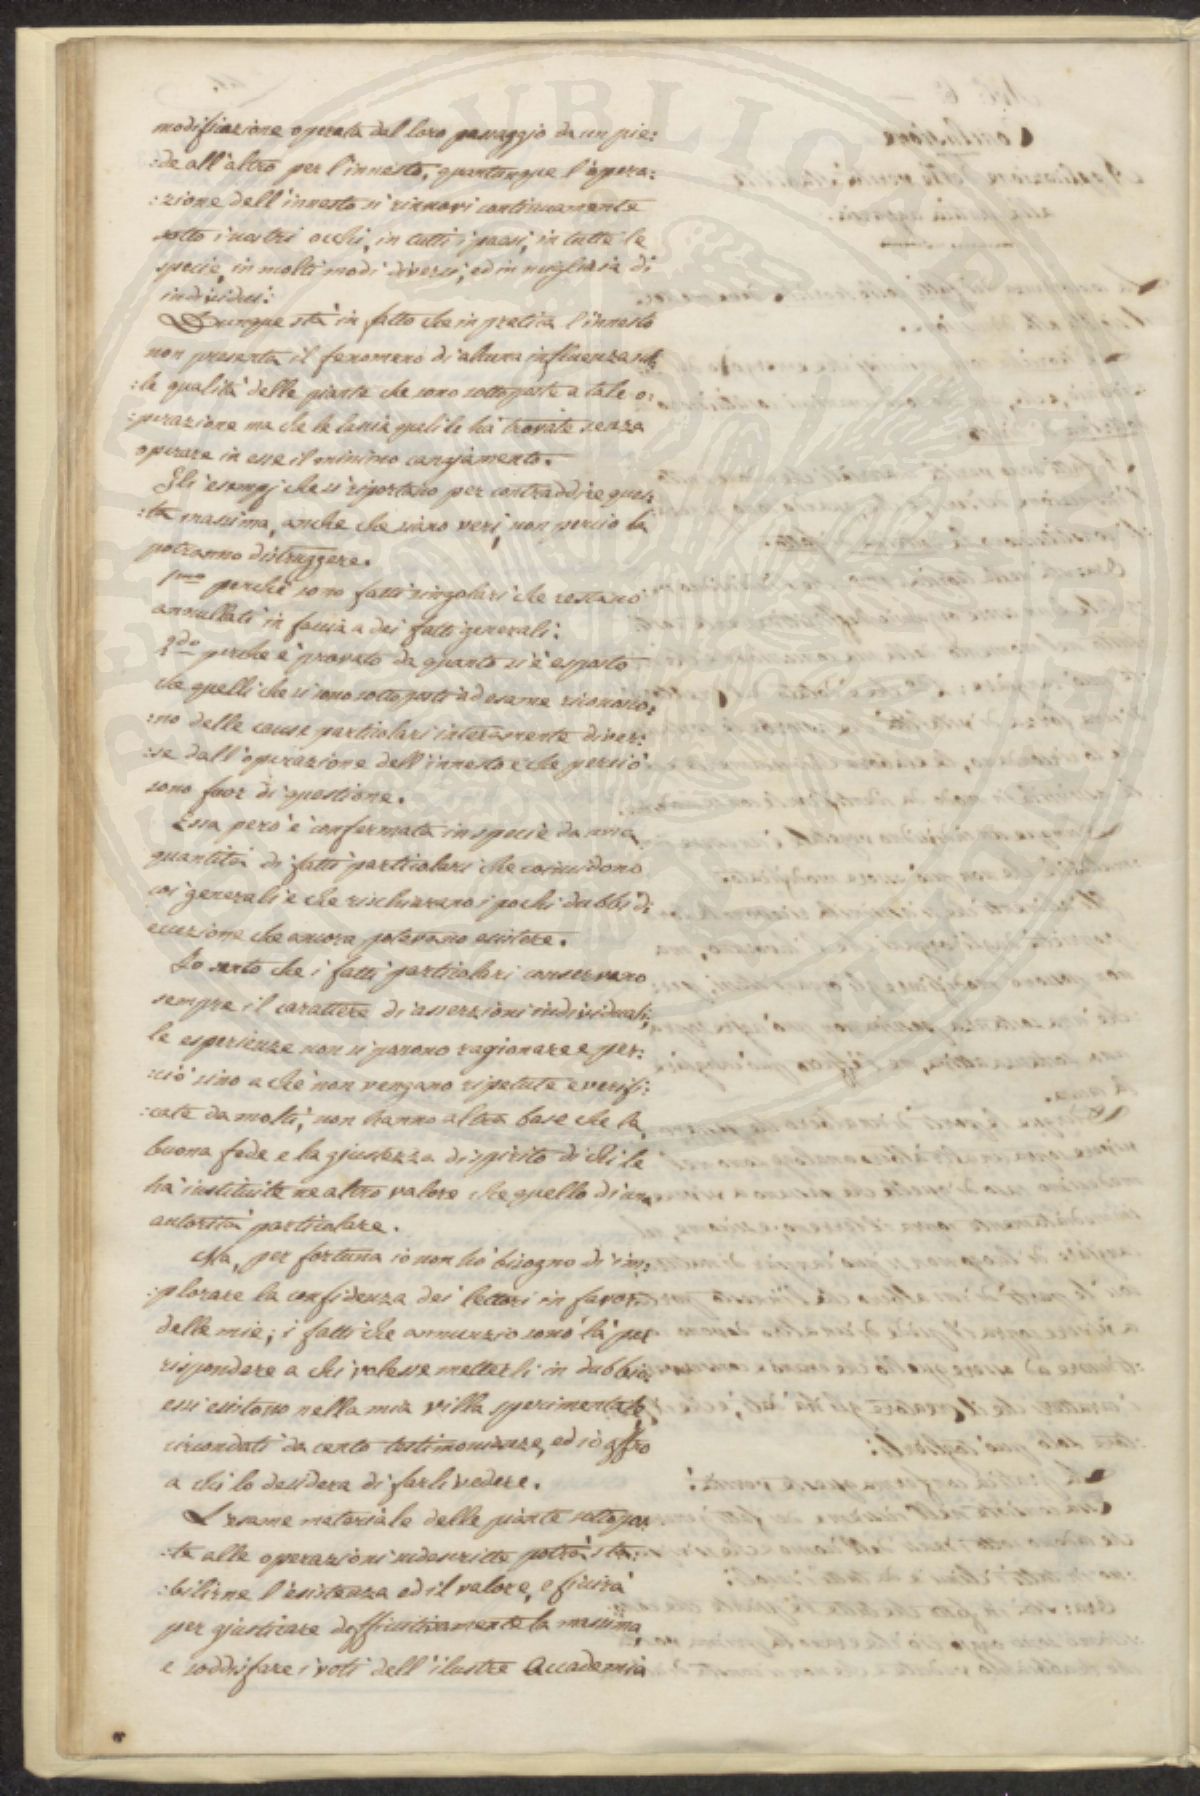 modificazione operata dal loro passaggio da un pie:
:de all'altro per l'innesto, quantunque l'opera:
:zione dell'innesto si rinnovi continuamente
sotto i nostri occhi, in tutti i paesi, in tutte le
specie, in molti modi diversi, ed in migliaia di
individui:
Dunque stà in fatto che in pratica l'innesto
non presenta il fenomeno di alcuna influenza sul:
:le qualità delle piante che sono sottoposte a tale o:
:perazione ma che le lascia quali le hà trovate senza
operare in esse il minimo cangiamento.
Gli esempj che si riportano per contraddire ques:
:ta massima, anche che siano veri, non perciò la
potranno distruggere.
1mo perchè sono fatti singolari che restano
annullati in faccia a dei fatti generali:
2do perche è provato da quanto si è esposto
che quelli che si sono sottoposti ad esame riconosco:
:no delle cause particolari interamente diver:
:se dall'operazione dell'innesto e che perciò
sono fuor di questione.
Essa però è confermata in specie da una
quantità di fatti particolari che coincidono
coi generali e che rischiarano i pochi dubbi di
eccezione che ancora potevano esistere.
Io sento che i fatti particolari conservano
sempre il carattere di asserzioni individuali;
le esperienze non si ponno ragionare e per:
:ciò sino a chè non vengano ripetute e verifi:
:cate da molti, non hanno altra base che la
buona fede e la giustezza di spirito di chi le
hà instituite ne altro valore che quello di una
autorità particolare.
Ma, per fortuna io non hò bisogno di im:
:plorare la confidenza dei lettori in favore
delle mie; i fatti che annunzio sono là per
rispondere a chi volesse metterli in dubbio,
essi esistono nella mia villa sperimentale,
circondati da cento testimonianze, ed io offro
a chi lo desidera di farli vedere.
L'esame materiale delle piante sottopos:
:te alle operazioni indescritte potrà sta:
:bilirne l'esistenza ed il valore, e finirà
per giustizare deffinitivamente la massima,
e soddisfare i voti dell'ilustre Accademia